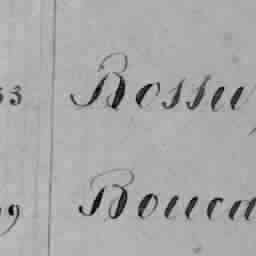 33 Bossu
9 Bouca